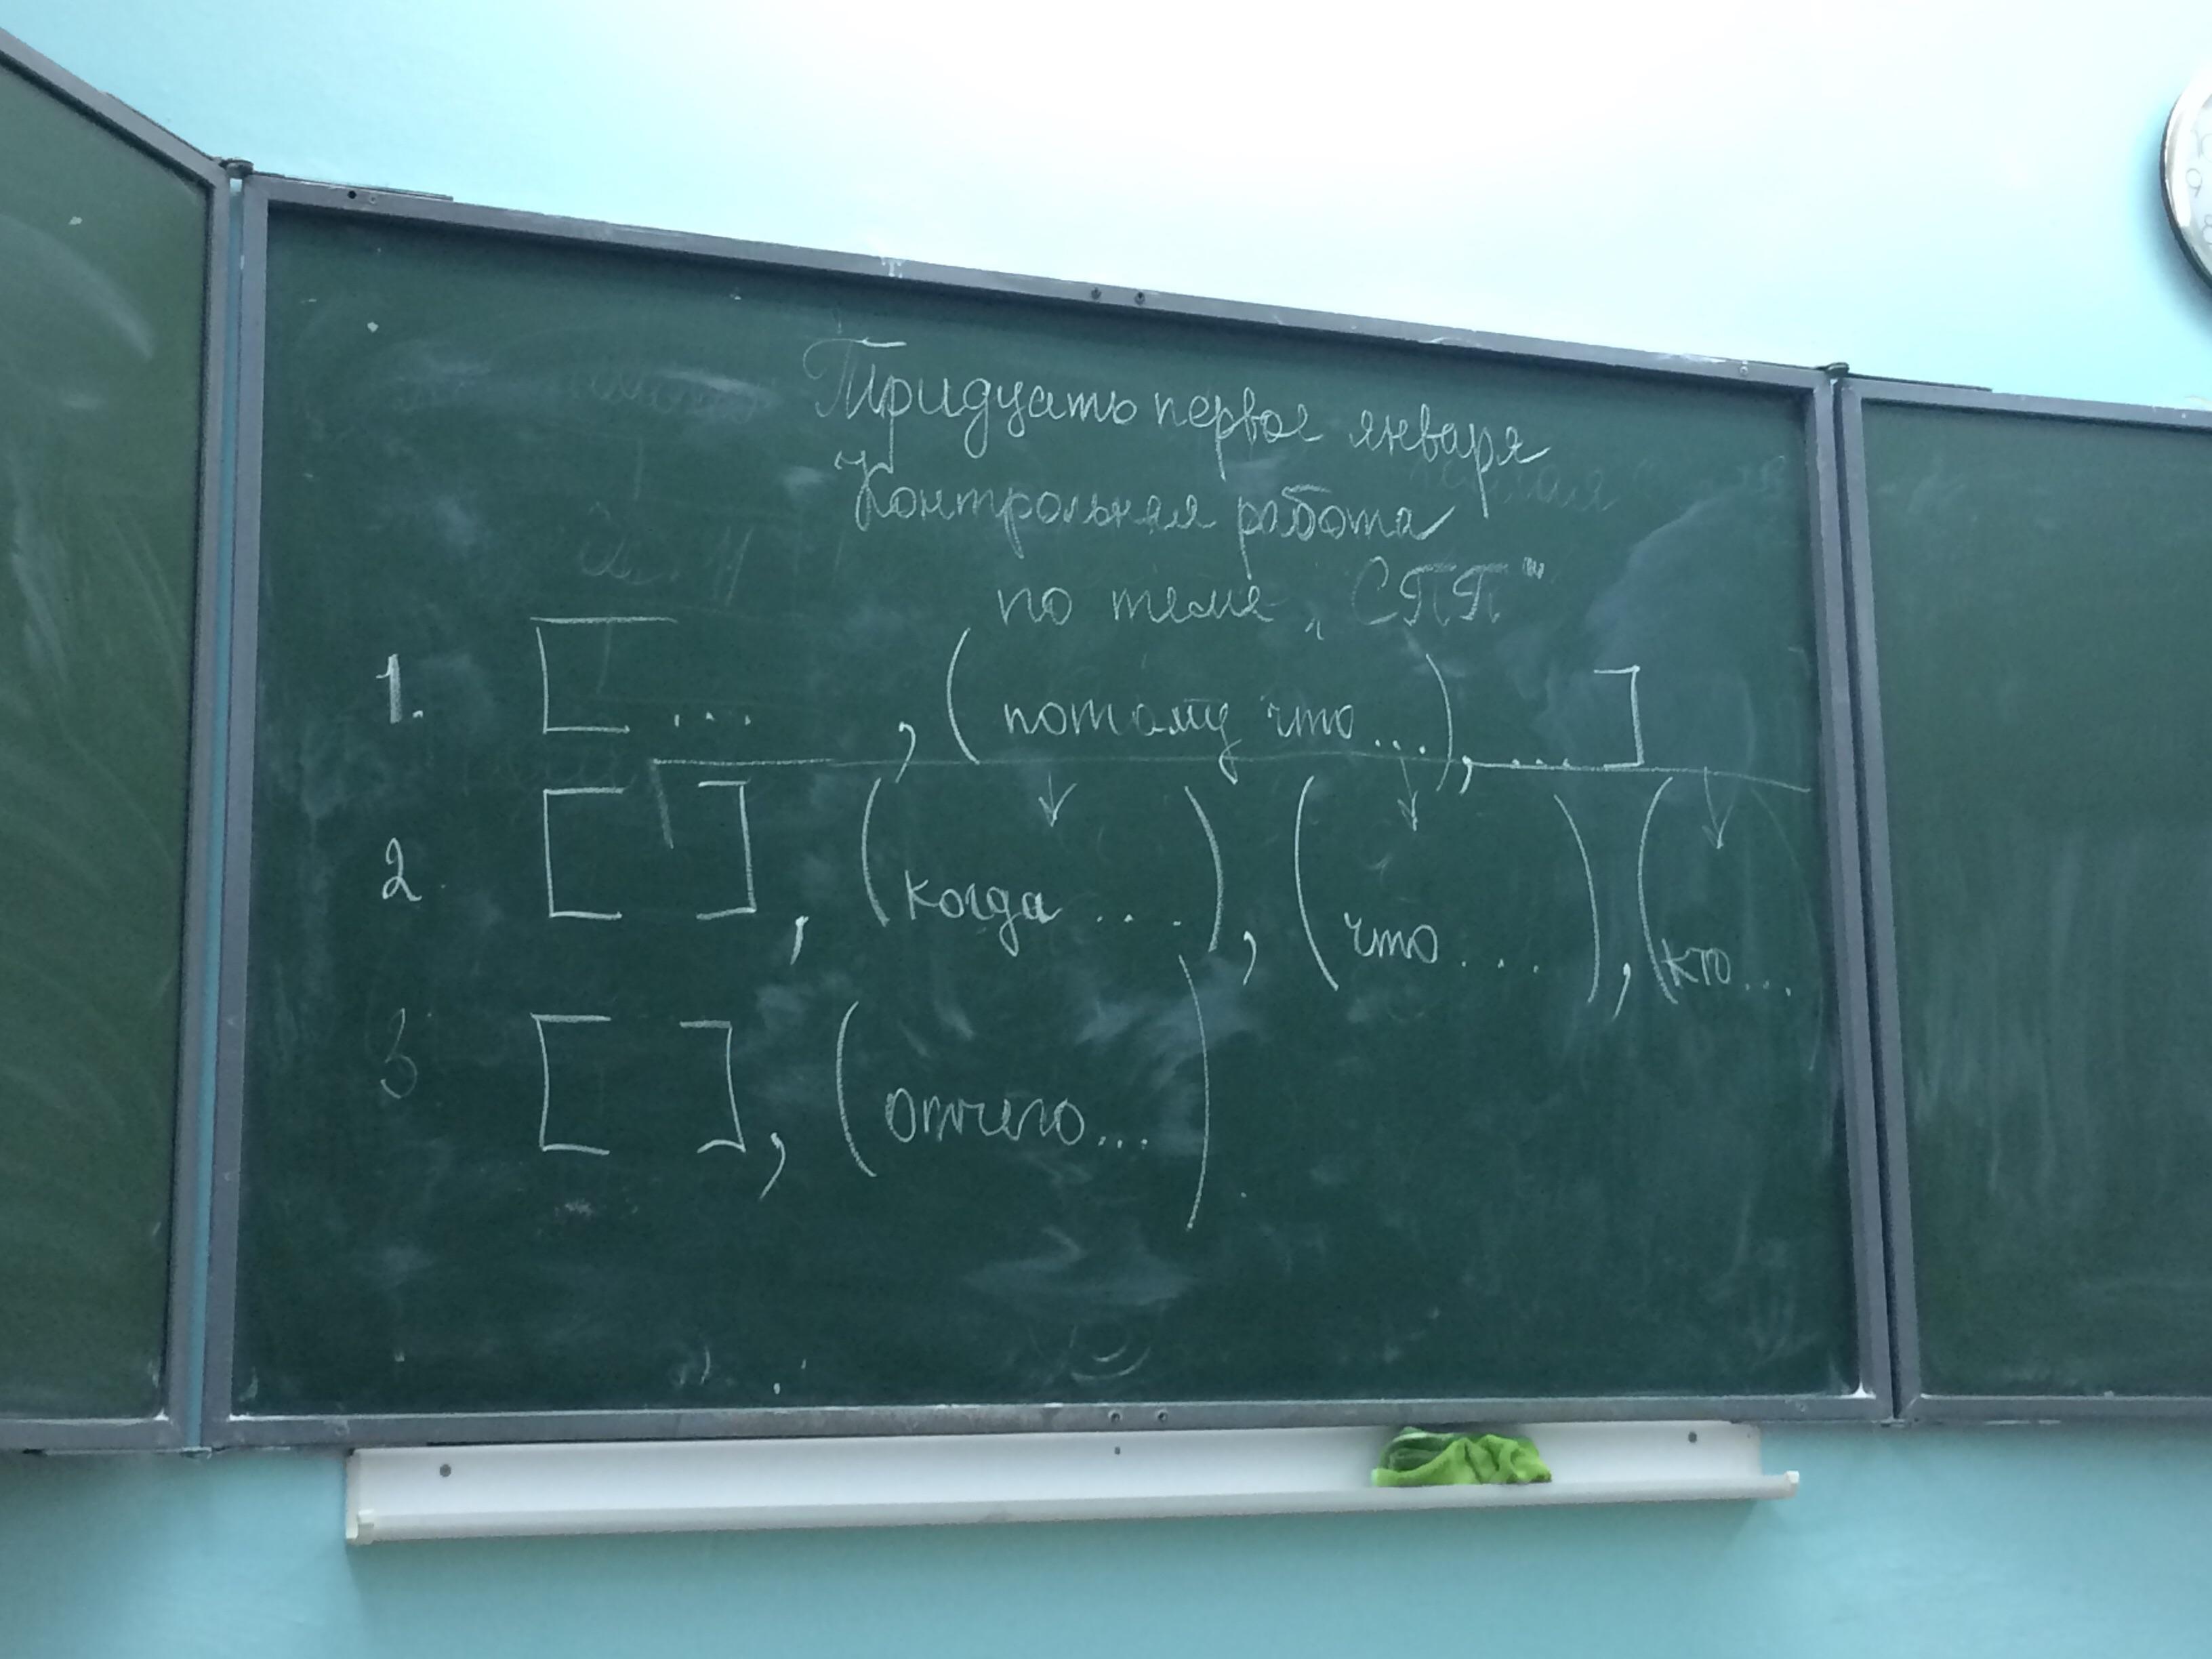 Тридцать первое января
Контрольная работа
по теме „СПП"
1. [ ... , (потому что ...), ... ]
2. [ ], (когда ....), (что ....), (кто...
3. [ ], (отчего...).